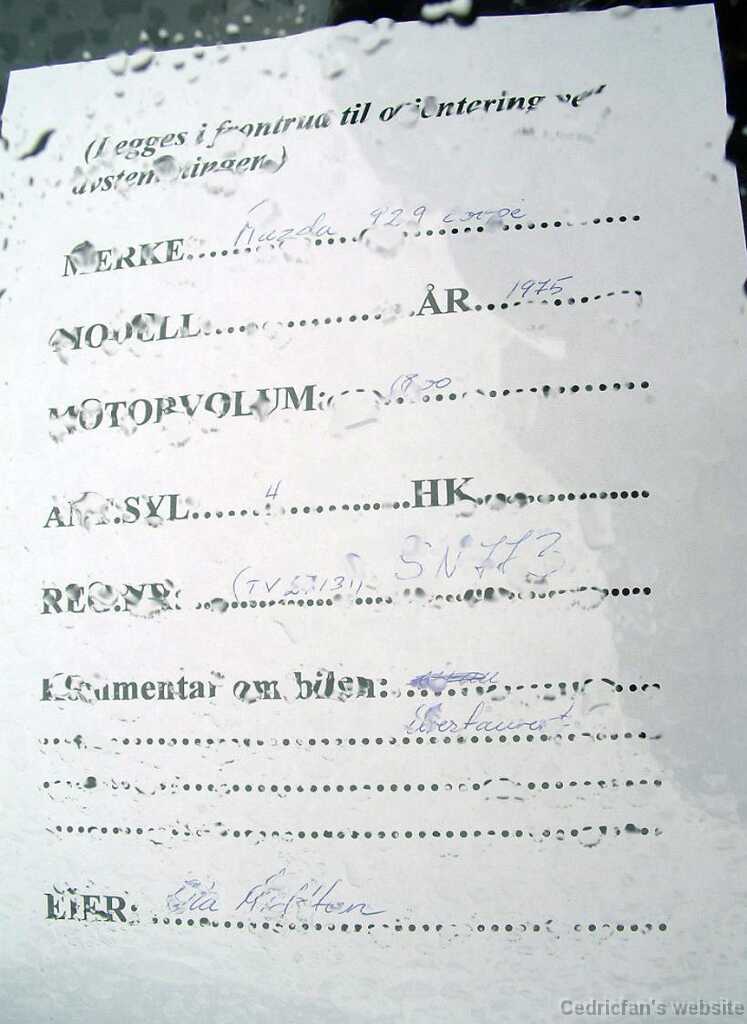 (Legges i frontrua til orientering ved
avstemningen.)
MERKE Mazda 929 coupé
MODELL ÅR 1975
MOTORVOLUM: 1800
ANT.SYL 4 HK
REG.NR: SN 773
Kommentar om bilen:
EIER:
Cedricfan's website